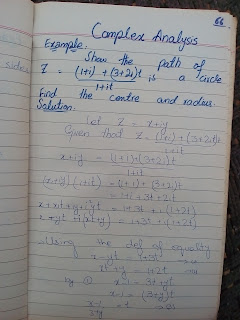 66
Complex Analysis
Example.
Show the path of
Z = (1+i) + (3+2i)t is a circle
1+it
Find the centre and radius.
Solution.
Let Z = x+iy
Given that Z = (1+i) + (3+2i)t
1+it
x+iy = (1+i)+(3+2i)t
1+it
(x+iy)(1+it) = (1+i) + (3+2i)t
= 1+i+3t+2it
= 1+3t + i(1+2t)
x-yt +i(xt+y) = 1+3t + i(1+2t)
Using the def of equality
x-yt = 1+3t
xt+y = 1+2t
x-1 = 3t+yt
x-1 = (3+y)t
x-1 = t
3+y